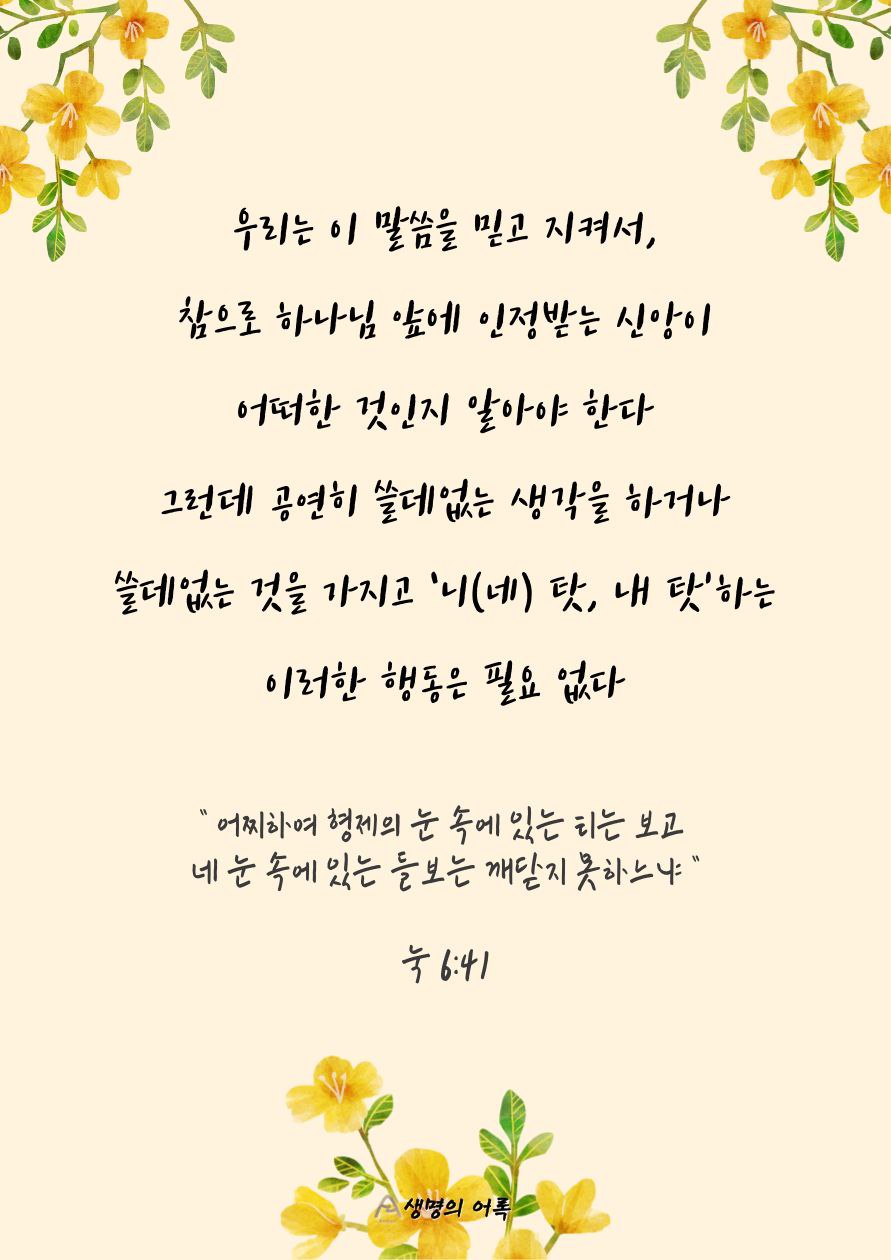 우리는 이 말씀을 믿고 지켜서,
참으로 하나님 앞에 인정받는 신앙이
어떠한 것인지 알아야 한다
그런데 공연히 쓸데없는 생각을 하거나
쓸데없는 것을 가지고 '니(네) 탓, 내 탓'하는
이러한 행동은 필요 없다
"어찌하여 형제의 눈 속에 있는 티는 보고
네 눈 속에 있는 들보는 깨닫지 못하느냐"
눅 6:41
생명의 어록